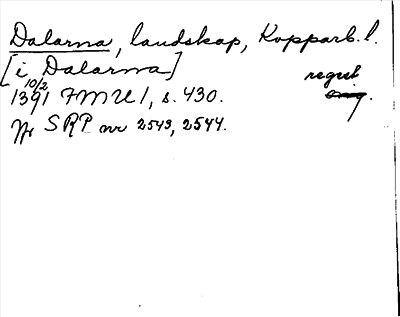 Dalarna, landskap, Kopparb. l.
[i Dalarna]
regest
10/2
1391 FMU 1, s. 430. orig.
Jfr SRP nr 2543, 2544.